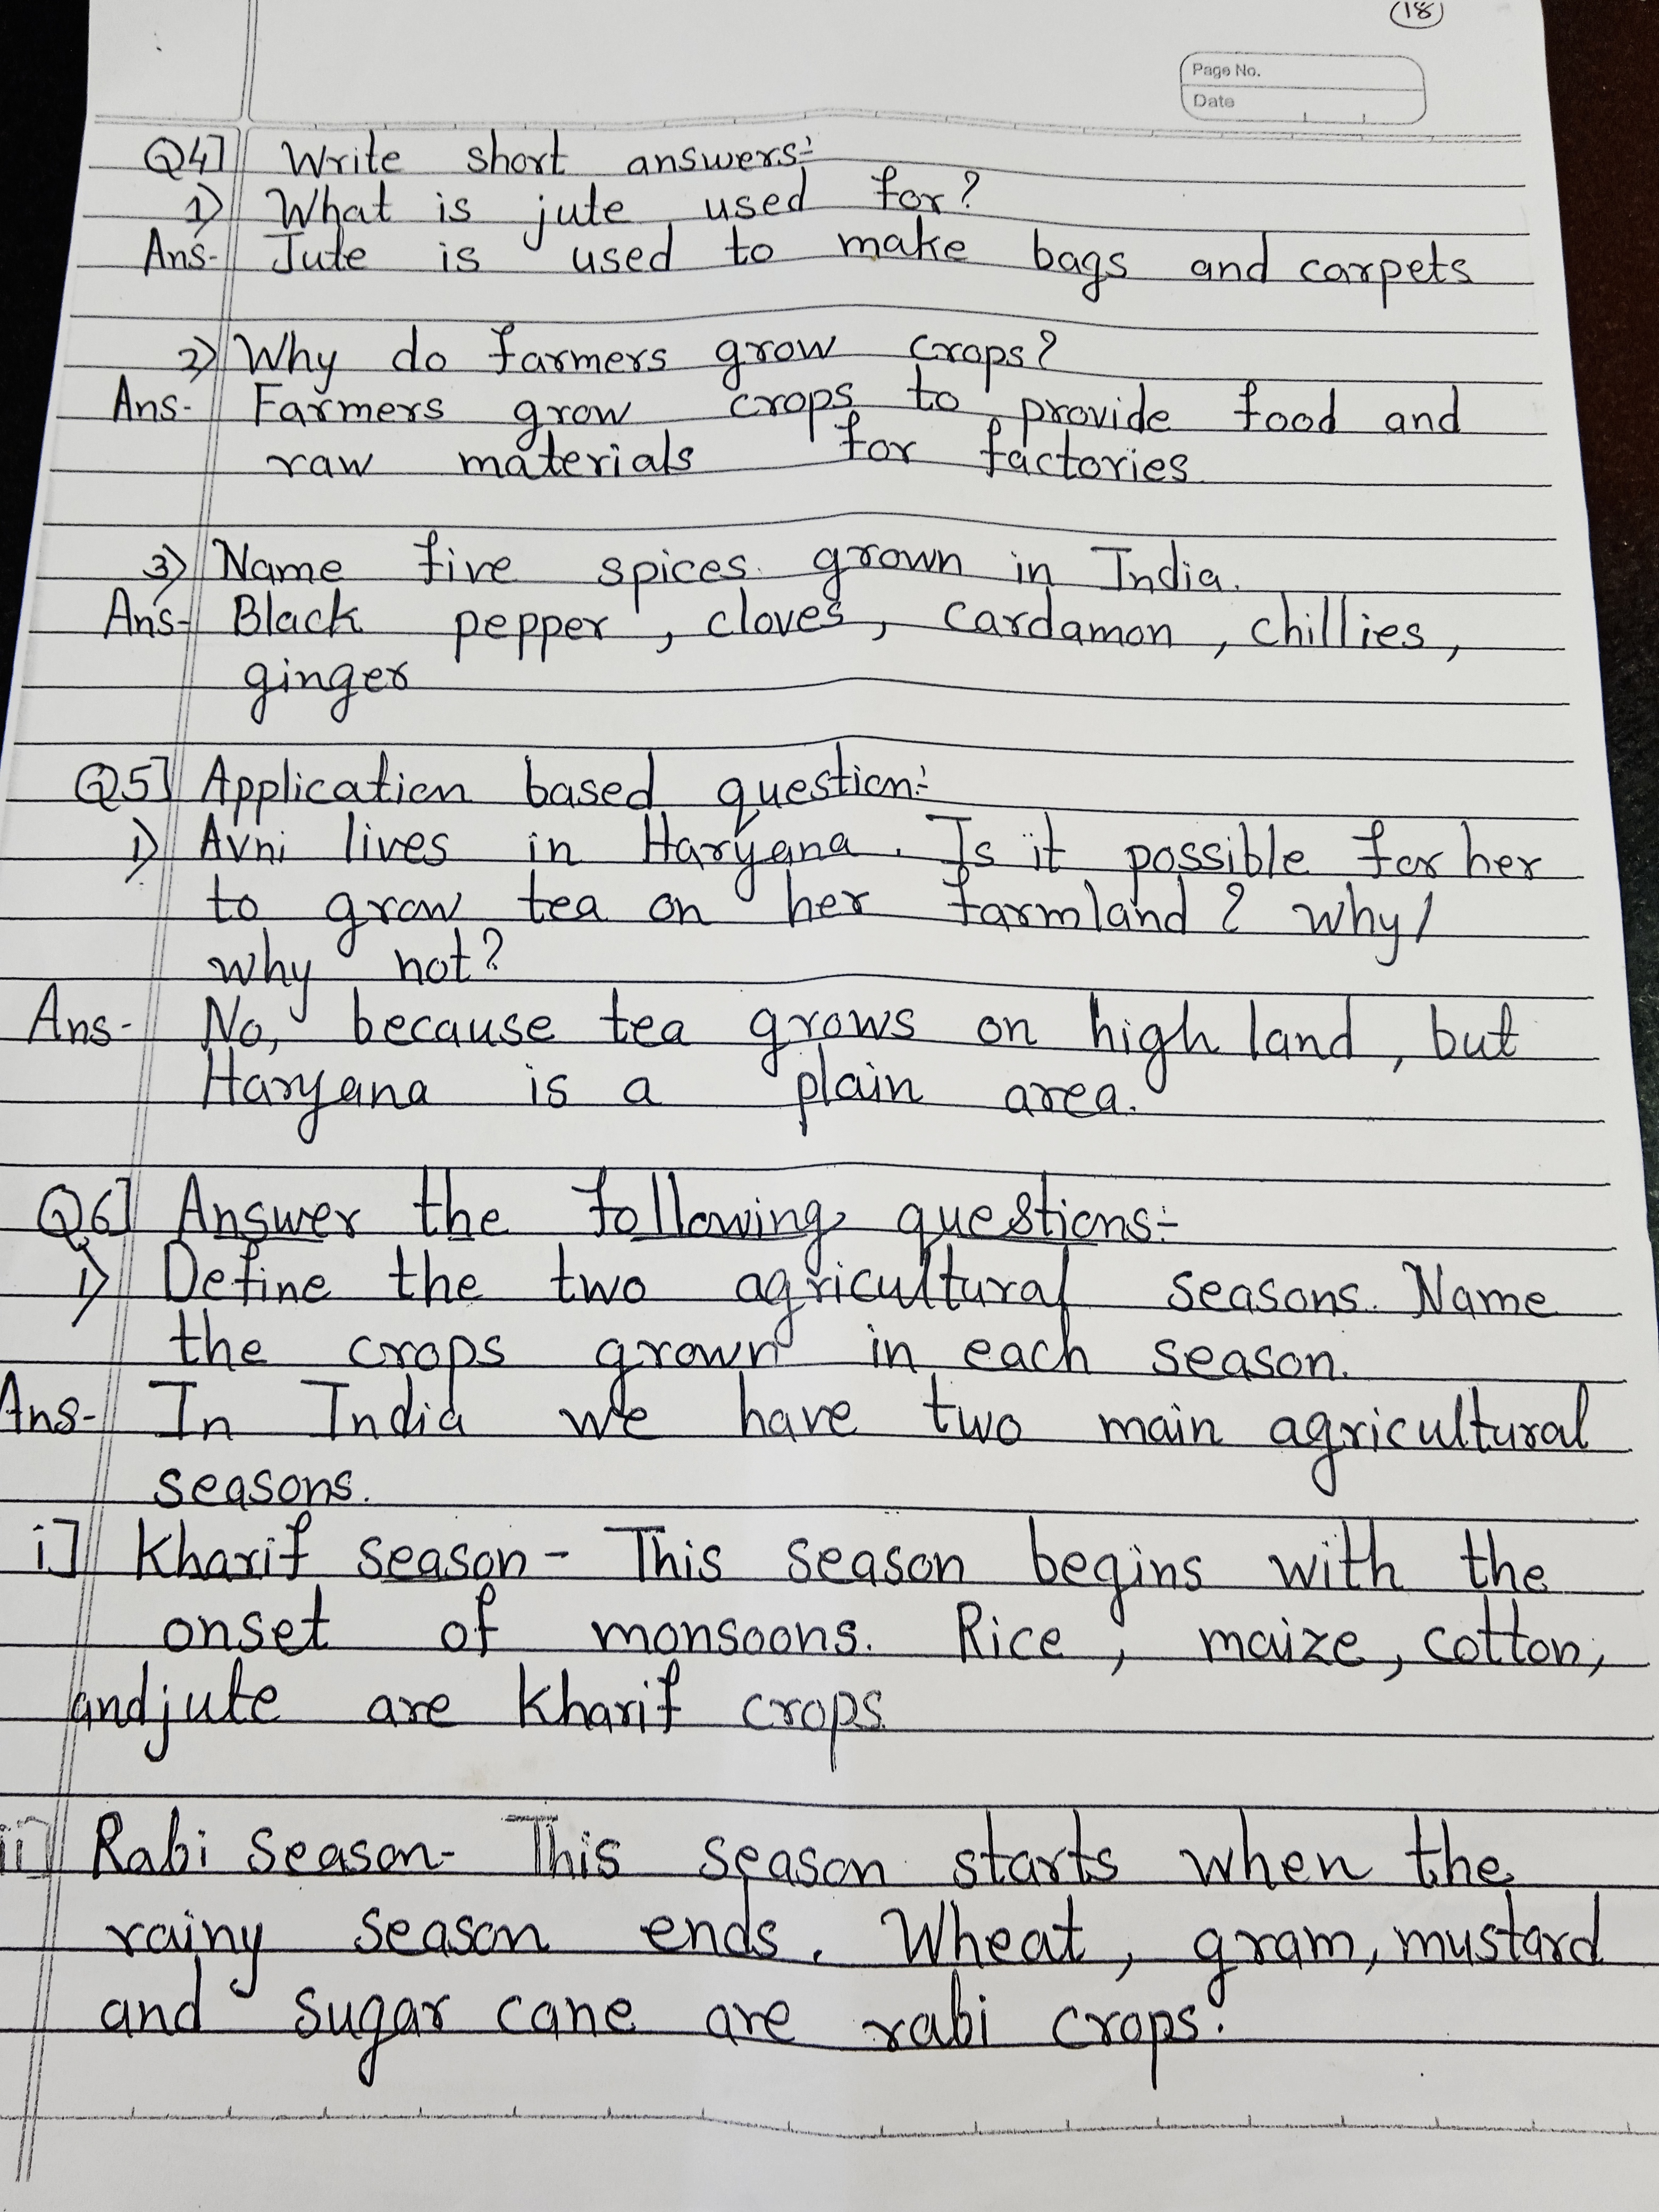 (18)
Page No.
Date
Q4] Write short answers:-
1) What is jute used for?
Ans- Jute is used to make bags and carpets
2) Why do farmers grow crops?
Ans- Farmers grow crops to provide food and
raw materials for factories.
3) Name five spices grown in India.
Ans- Black pepper, cloves, cardamon, chillies,
ginger
Q5] Application based question:-
1) Avni lives in Haryana. Is it possible for her
to grow tea on her farmland? why/
why not?
Ans- No, because tea grows on high land, but
Haryana is a plain area.
Q6] Answer the following questions:-
1) Define the two agricultural seasons. Name
the crops grown in each season.
Ans- In India we have two main agricultural
seasons.
i] Kharif season- This season begins with the
onset of monsoons. Rice, maize, cotton,
and jute are kharif crops.
ii] Rabi season- This season starts when the
rainy season ends. Wheat, gram, mustard
and sugar cane are rabi crops.